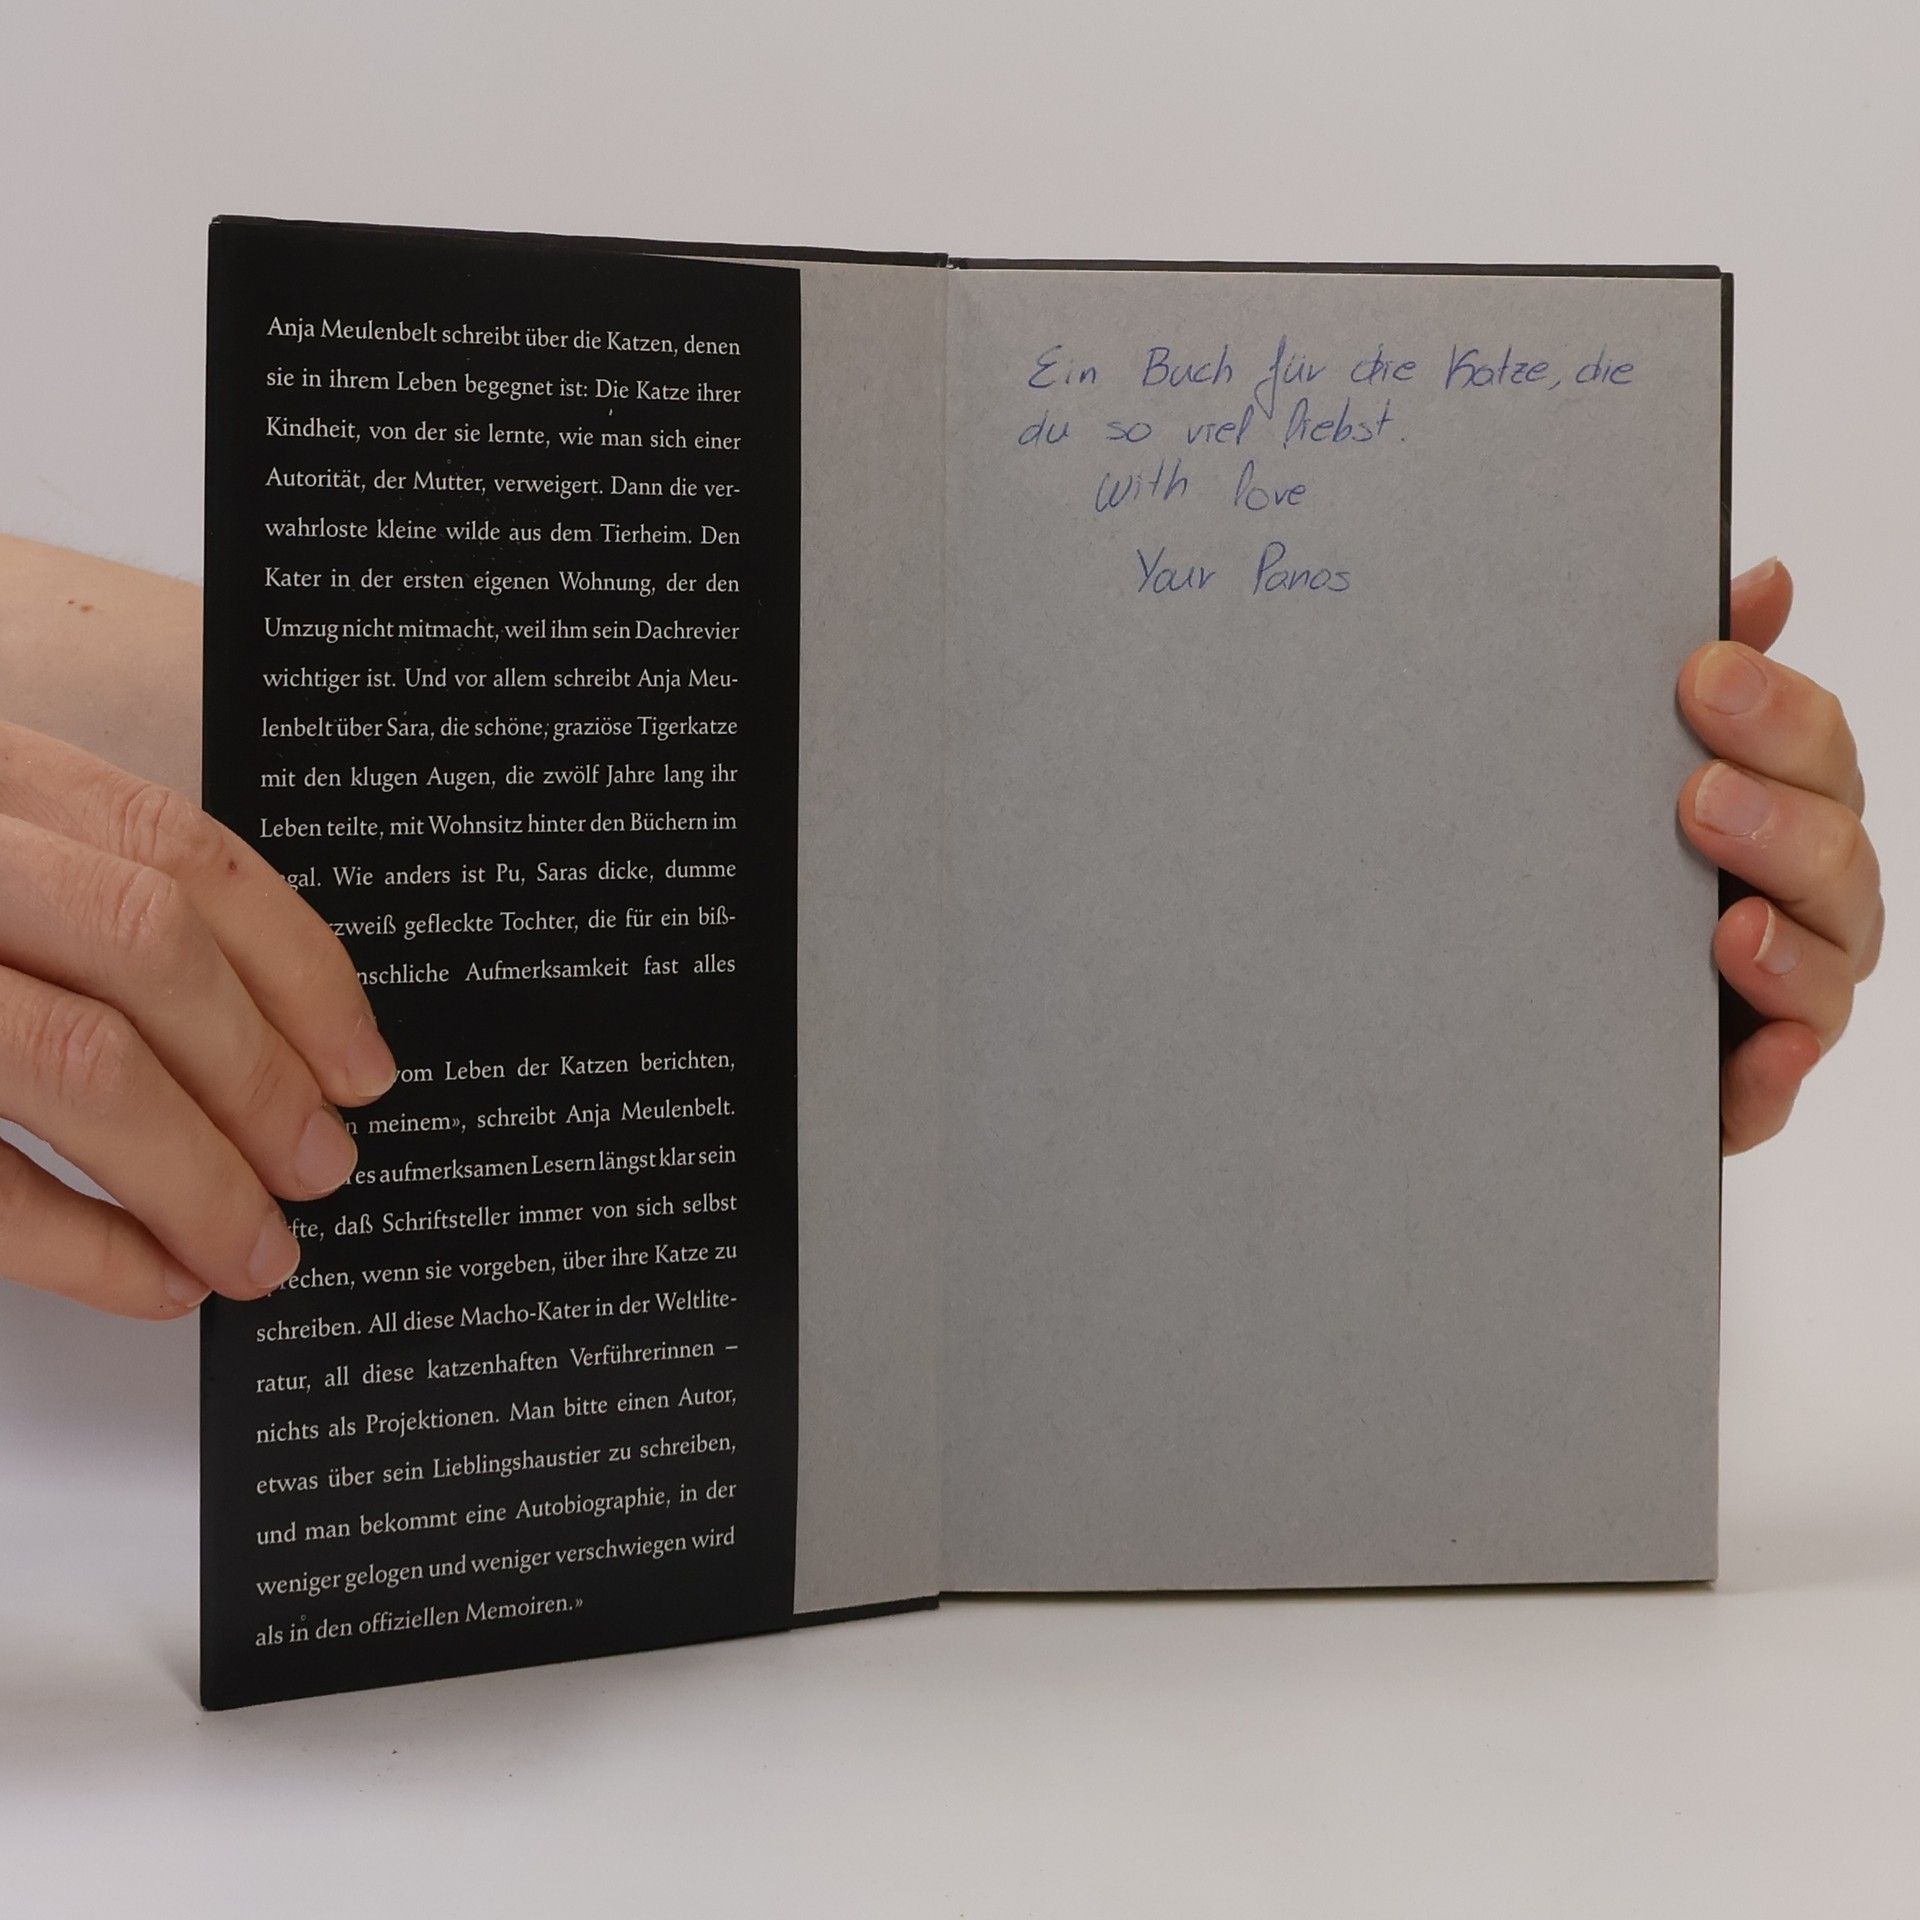 Anja Meulenbelt schreibt über die Katzen, denen
sie in ihrem Leben begegnet ist: Die Katze ihrer
Kindheit, von der sie lernte, wie man sich einer
Autorität, der Mutter, verweigert. Dann die ver-
wahrloste kleine wilde aus dem Tierheim. Den
Kater in der ersten eigenen Wohnung, der den
Umzug nicht mitmacht, weil ihm sein Dachrevier
wichtiger ist. Und vor allem schreibt Anja Meu-
lenbelt über Sara, die schöne, graziöse Tigerkatze
mit den klugen Augen, die zwölf Jahre lang ihr
Leben teilte, mit Wohnsitz hinter den Büchern im
gal. Wie anders ist Pu, Saras dicke, dumme
zweiß gefleckte Tochter, die für ein biß-
nschliche Aufmerksamkeit fast alles
vom Leben der Katzen berichten,
n meinem», schreibt Anja Meulenbelt.
es aufmerksamen Lesern längst klar sein
fte, daß Schriftsteller immer von sich selbst
rechen, wenn sie vorgeben, über ihre Katze zu
schreiben. All diese Macho-Kater in der Weltlite-
ratur, all diese katzenhaften Verführerinnen –
nichts als Projektionen. Man bitte einen Autor,
etwas über sein Lieblingshaustier zu schreiben,
und man bekommt eine Autobiographie, in der
weniger gelogen und weniger verschwiegen wird
als in den offiziellen Memoiren.»
Ein Buch für die Katze, die
du so viel liebst.
With love
Your Panos